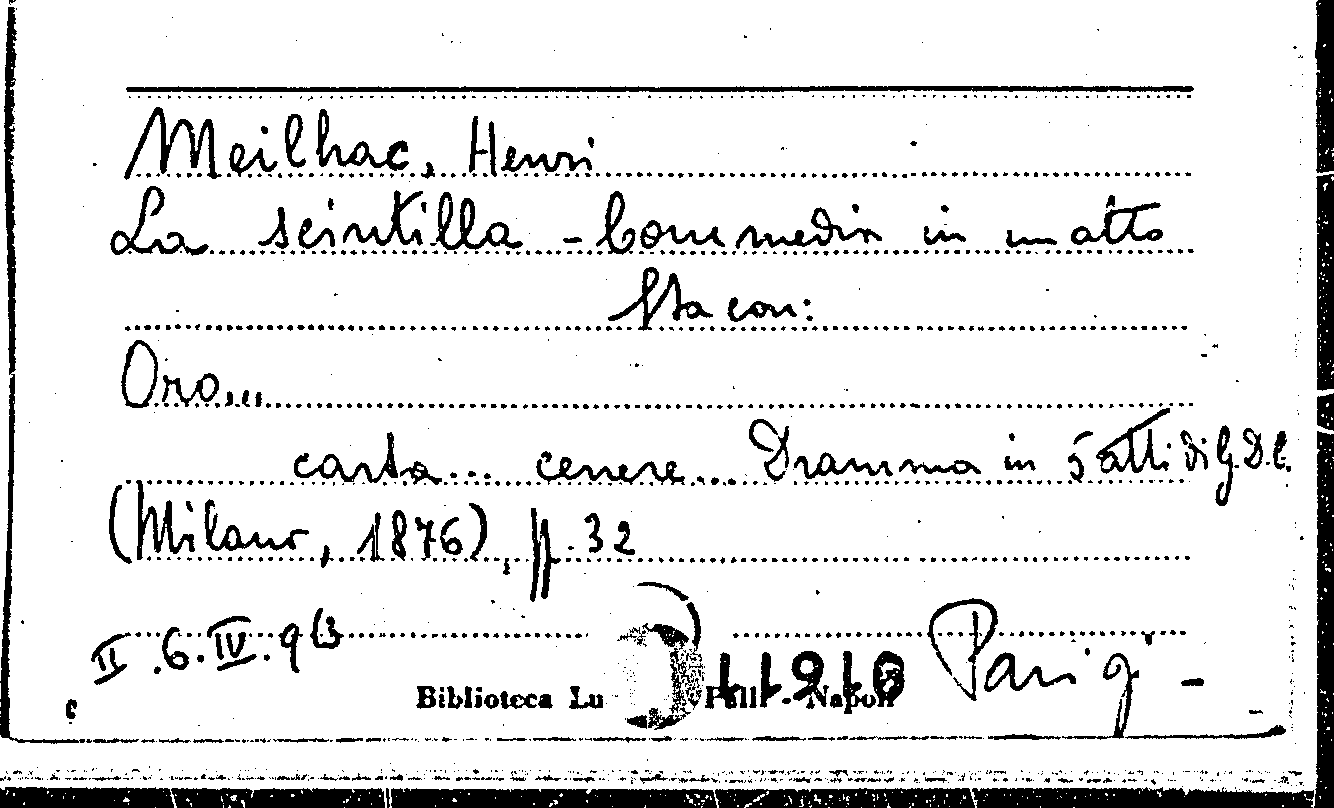 Meilhac, Henri
La scintilla - Commedia in un atto
Sta con:
Oro...
carta... cenere... Dramma in 5 atti di G.D.C.
(Milano, 1876), pp. 32
II.6.IV.9(3
Biblioteca Lu Palli - Napoli
11910
Parigi -